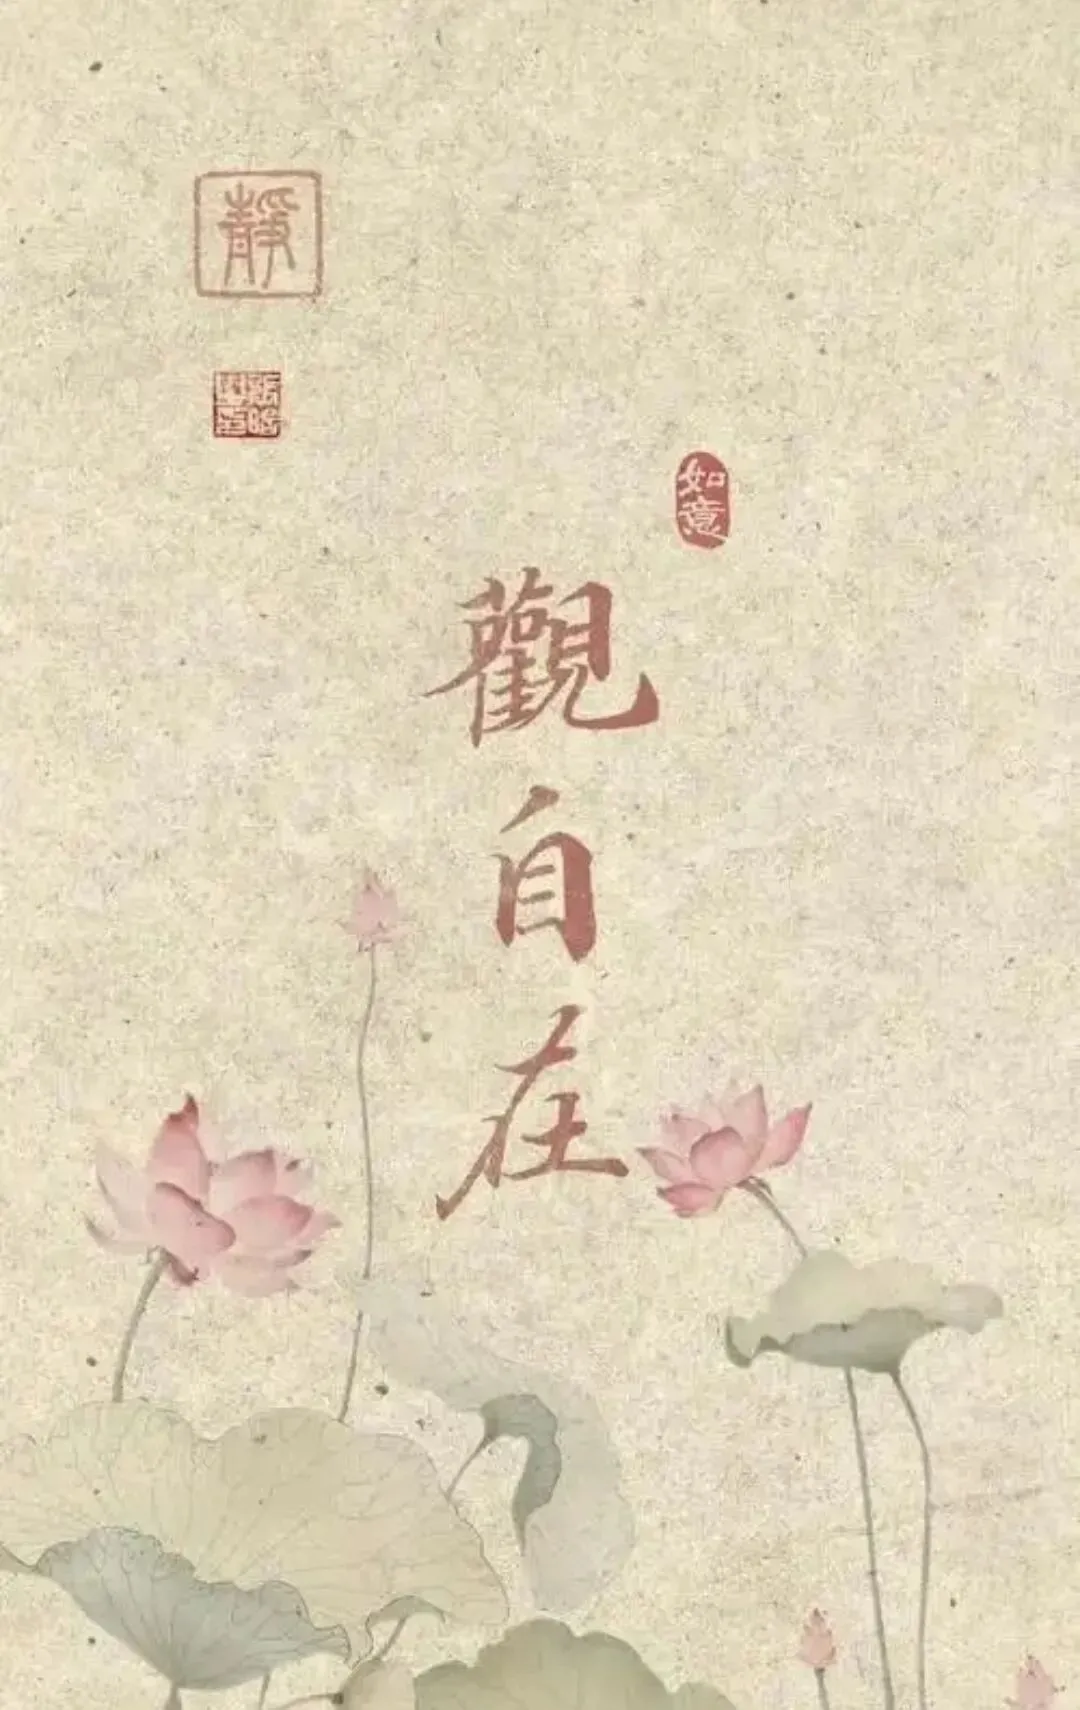 靜
如意
觀自在